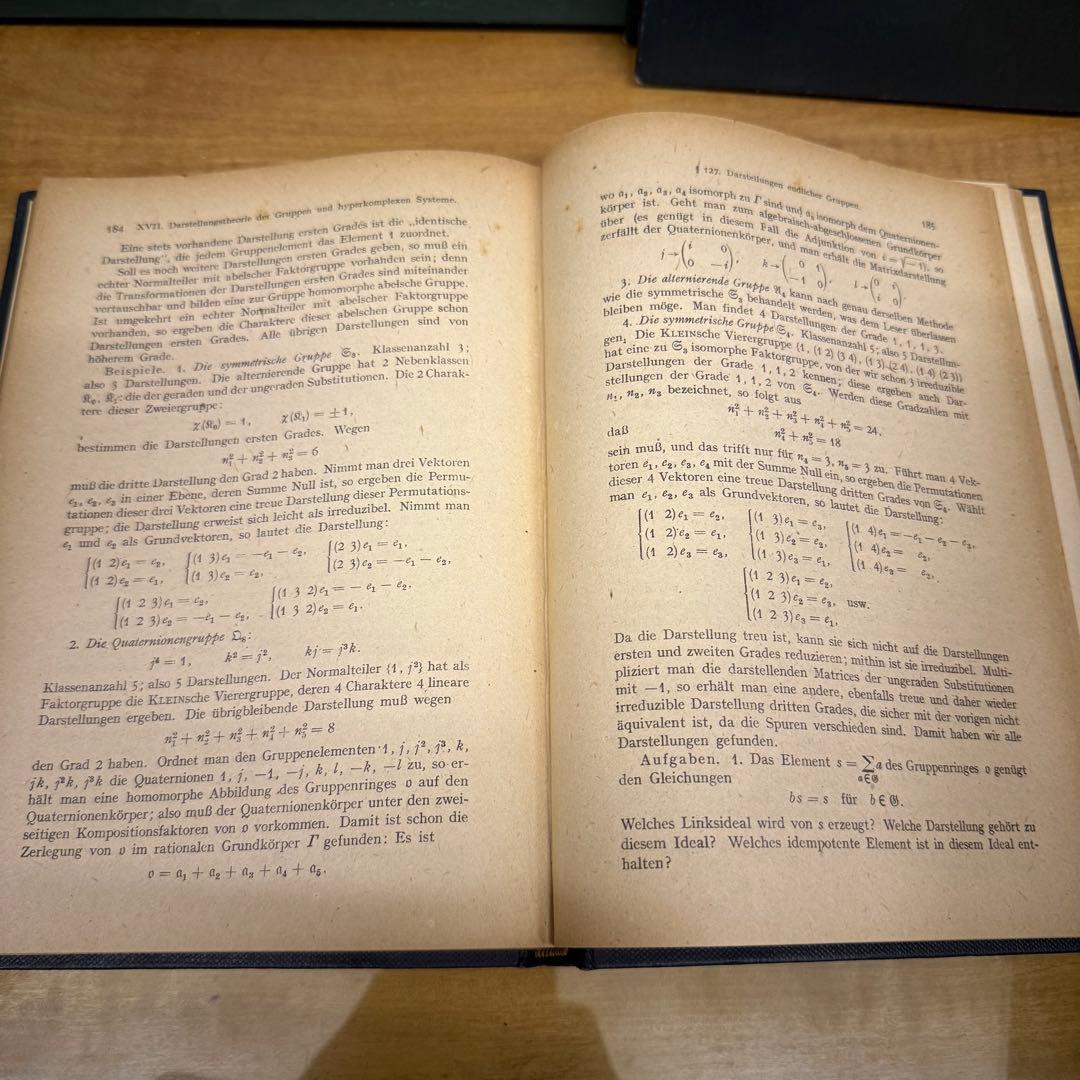 184 XVII. Darstellungstheorie der Gruppen und hyperkomplexen Systeme.
Eine stets vorhandene Darstellung ersten Grades ist die „identische
Darstellung", die jedem Gruppenelement das Element 1 zuordnet.
Soll es noch weitere Darstellungen ersten Grades geben, so muß ein
echter Normalteiler mit abelscher Faktorgruppe vorhanden sein; denn
die Transformationen der Darstellungen ersten Grades sind miteinander
vertauschbar und bilden eine zur Gruppe homomorphe abelsche Gruppe.
Ist umgekehrt ein echter Normalteiler mit abelscher Faktorgruppe
vorhanden, so ergeben die Charaktere dieser abelschen Gruppe schon
Darstellungen ersten Grades. Alle übrigen Darstellungen sind von
höherem Grade.
Beispiele. 1. Die symmetrische Gruppe 𝔖₃. Klassenanzahl 3;
also 3 Darstellungen. Die alternierende Gruppe hat 2 Nebenklassen
𝔎₀, 𝔎₁: die der geraden und der ungeraden Substitutionen. Die 2 Charak-
tere dieser Zweiergruppe:
χ(𝔎₀) = 1, χ(𝔎₁) = ±1,
bestimmen die Darstellungen ersten Grades. Wegen
n₁² + n₂² + n₃² = 6
muß die dritte Darstellung den Grad 2 haben. Nimmt man drei Vektoren
e₁, e₂, e₃ in einer Ebene, deren Summe Null ist, so ergeben die Permu-
tationen dieser drei Vektoren eine treue Darstellung dieser Permutations-
gruppe; die Darstellung erweist sich leicht als irreduzibel. Nimmt man
e₁ und e₂ als Grundvektoren, so lautet die Darstellung:
{(1 2)e₁ = e₂, {(1 3)e₁ = −e₁ − e₂, {(2 3)e₁ = e₁,
{(1 2)e₂ = e₁, {(1 3)e₂ = e₂, {(2 3)e₂ = −e₁ − e₂,
{(1 2 3)e₁ = e₂, {(1 3 2)e₁ = − e₁ − e₂,
{(1 2 3)e₂ = −e₁ − e₂, {(1 3 2)e₂ = e₁.
2. Die Quaternionengruppe 𝔔₈:
j⁴ = 1, k² = j², kj = j³k.
Klassenanzahl 5; also 5 Darstellungen. Der Normalteiler {1, j²} hat als
Faktorgruppe die KLEINsche Vierergruppe, deren 4 Charaktere 4 lineare
Darstellungen ergeben. Die übrigbleibende Darstellung muß wegen
n₁² + n₂² + n₃² + n₄² + n₅² = 8
den Grad 2 haben. Ordnet man den Gruppenelementen 1, j, j², j³, k,
jk, j²k, j³k die Quaternionen 1, j, −1, −j, k, l, −k, −l zu, so er-
hält man eine homomorphe Abbildung des Gruppenringes 𝔬 auf den
Quaternionenkörper; also muß der Quaternionenkörper unter den zwei-
seitigen Kompositionsfaktoren von 𝔬 vorkommen. Damit ist schon die
Zerlegung von 𝔬 im rationalen Grundkörper Γ gefunden: Es ist
𝔬 = 𝔞₁ + 𝔞₂ + 𝔞₃ + 𝔞₄ + 𝔞₅,
§ 127. Darstellungen endlicher Gruppen. 185
wo 𝔞₁, 𝔞₂, 𝔞₃, 𝔞₄ isomorph zu Γ sind und 𝔞₅ isomorph dem Quaternionen-
körper ist. Geht man zum algebraisch-abgeschlossenen Grundkörper
über (es genügt in diesem Fall die Adjunktion von i = √−1), so
zerfällt der Quaternionenkörper, und man erhält die Matrixdarstellung
j → (i 0; 0 −i), k → (0 1; −1 0), l → (0 i; i 0).
3. Die alternierende Gruppe 𝔄₄ kann nach genau derselben Methode
wie die symmetrische 𝔖₃ behandelt werden, was dem Leser überlassen
bleiben möge. Man findet 4 Darstellungen der Grade 1, 1, 1, 3.
4. Die symmetrische Gruppe 𝔖₄. Klassenanzahl 5; also 5 Darstellun-
gen. Die KLEINsche Vierergruppe {1, (1 2) (3 4), (1 3) (2 4), (1 4) (2 3)}
hat eine zu 𝔖₃ isomorphe Faktorgruppe, von der wir schon 3 irreduzible
Darstellungen der Grade 1, 1, 2 kennen; diese ergeben auch Dar-
stellungen der Grade 1, 1, 2 von 𝔖₄. Werden diese Gradzahlen mit
n₁, n₂, n₃ bezeichnet, so folgt aus
n₁² + n₂² + n₃² + n₄² + n₅² = 24,
daß
n₄² + n₅² = 18
sein muß, und das trifft nur für n₄ = 3, n₅ = 3 zu. Führt man 4 Vek-
toren e₁, e₂, e₃, e₄ mit der Summe Null ein, so ergeben die Permutationen
dieser 4 Vektoren eine treue Darstellung dritten Grades von 𝔖₄. Wählt
man e₁, e₂, e₃ als Grundvektoren, so lautet die Darstellung:
{(1 2)e₁ = e₂, {(1 3)e₁ = e₃, {(1 4)e₁ = −e₁ − e₂ − e₃,
{(1 2)e₂ = e₁, {(1 3)e₂ = e₂, {(1 4)e₂ = e₂,
{(1 2)e₃ = e₃, {(1 3)e₃ = e₁, {(1 4)e₃ = e₃,
{(1 2 3)e₁ = e₂,
{(1 2 3)e₂ = e₃, usw.
{(1 2 3)e₃ = e₁,
Da die Darstellung treu ist, kann sie sich nicht auf die Darstellungen
ersten und zweiten Grades reduzieren; mithin ist sie irreduzibel. Multi-
pliziert man die darstellenden Matrices der ungeraden Substitutionen
mit −1, so erhält man eine andere, ebenfalls treue und daher wieder
irreduzible Darstellung dritten Grades, die sicher mit der vorigen nicht
äquivalent ist, da die Spuren verschieden sind. Damit haben wir alle
Darstellungen gefunden.
Aufgaben. 1. Das Element s = ∑ a des Gruppenringes 𝔬 genügt
a∈𝔊
den Gleichungen
bs = s für b ∈ 𝔊.
Welches Linksideal wird von s erzeugt? Welche Darstellung gehört zu
diesem Ideal? Welches idempotente Element ist in diesem Ideal ent-
halten?